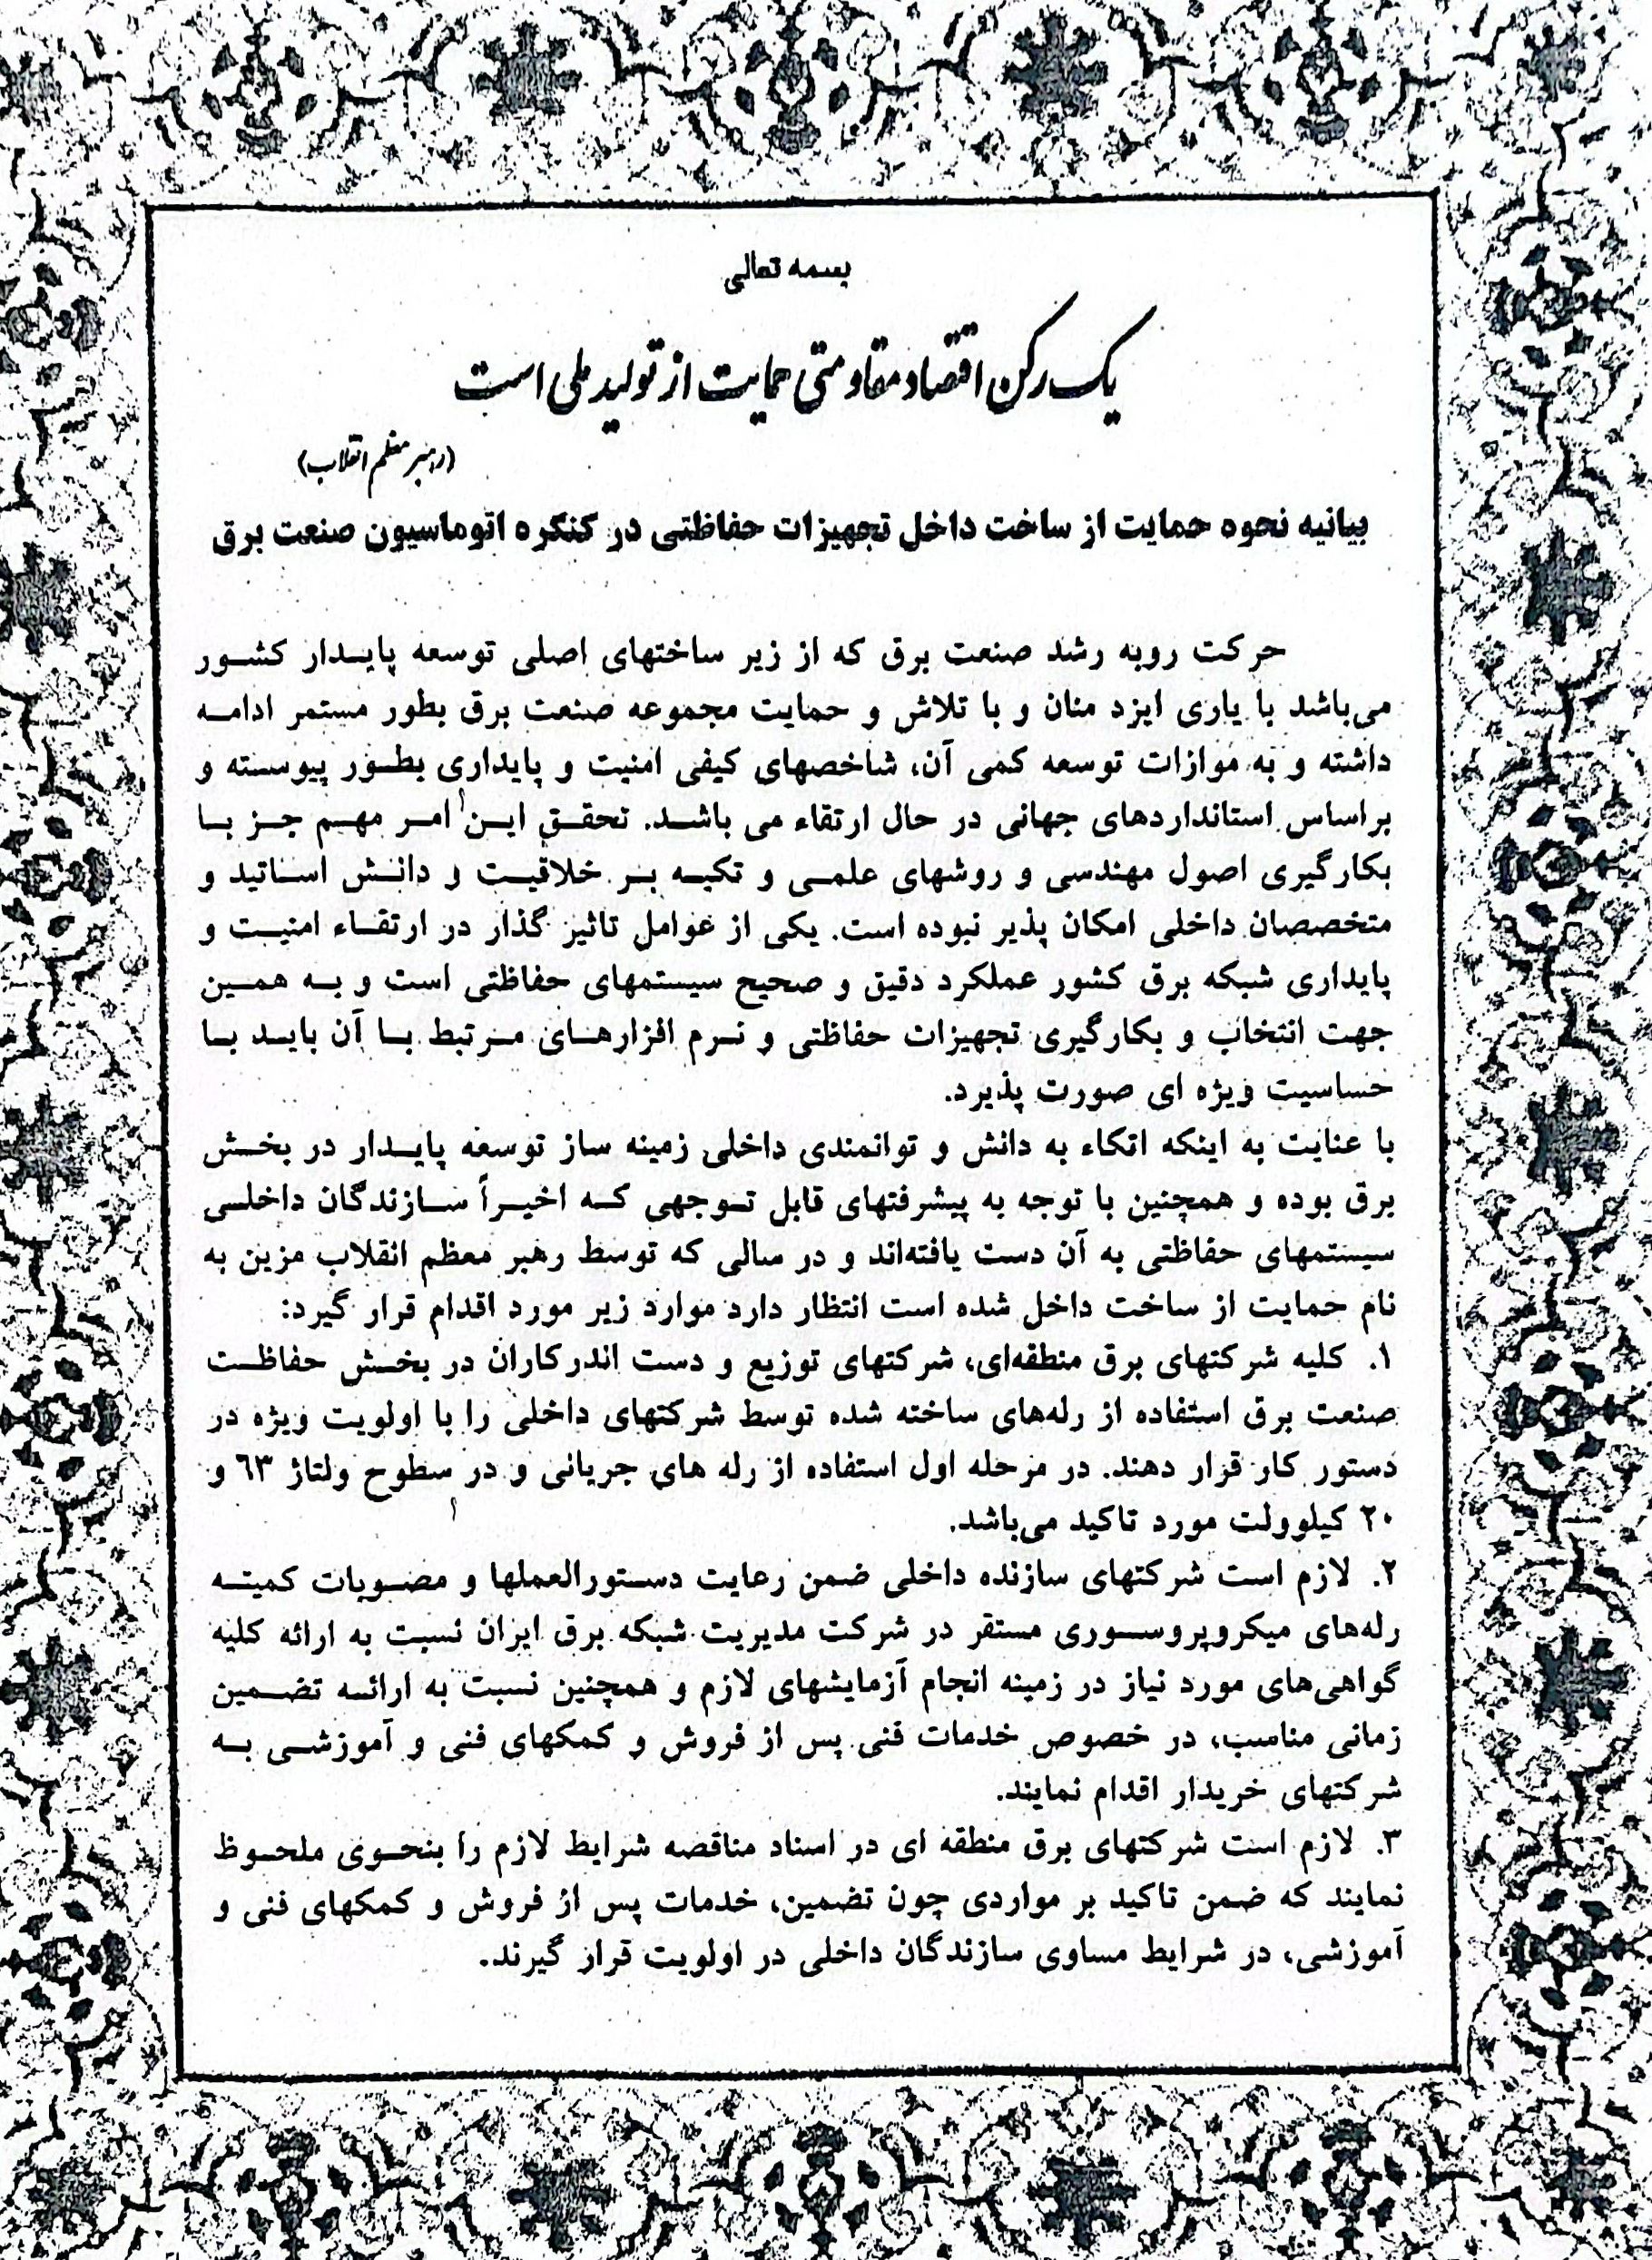 بسمه تعالی
یک رکن اقتصاد مقاومتی حمایت از تولید ملی است
(رهبر معظم انقلاب)
بیانیه نحوه حمایت از ساخت داخل تجهیزات حفاظتی در کنگره اتوماسیون صنعت برق
حرکت روبه رشد صنعت برق که از زیر ساختهای اصلی توسعه پایدار کشور
می‌باشد با یاری ایزد منان و با تلاش و حمایت مجموعه صنعت برق بطور مستمر ادامه
داشته و به موازات توسعه کمی آن، شاخصهای کیفی امنیت و پایداری بطور پیوسته و
براساس استانداردهای جهانی در حال ارتقاء می باشد. تحقق این امر مهم جز با
بکارگیری اصول مهندسی و روشهای علمی و تکیه بر خلاقیت و دانش اساتید و
متخصصان داخلی امکان پذیر نبوده است. یکی از عوامل تاثیر گذار در ارتقاء امنیت و
پایداری شبکه برق کشور عملکرد دقیق و صحیح سیستمهای حفاظتی است و به همین
جهت انتخاب و بکارگیری تجهیزات حفاظتی و نرم افزارهای مرتبط با آن باید با
حساسیت ویژه ای صورت پذیرد.
با عنایت به اینکه اتکاء به دانش و توانمندی داخلی زمینه ساز توسعه پایدار در بخش
برق بوده و همچنین با توجه به پیشرفتهای قابل توجهی که اخیراً سازندگان داخلی
سیستمهای حفاظتی به آن دست یافته‌اند و در سالی که توسط رهبر معظم انقلاب مزین به
نام حمایت از ساخت داخل شده است انتظار دارد موارد زیر مورد اقدام قرار گیرد:
۱. کلیه شرکتهای برق منطقه‌ای، شرکتهای توزیع و دست اندرکاران در بخش حفاظت
صنعت برق استفاده از رله‌های ساخته شده توسط شرکتهای داخلی را با اولویت ویژه در
دستور کار قرار دهند. در مرحله اول استفاده از رله های جریانی و در سطوح ولتاژ ٦٣ و
۲۰ کیلوولت مورد تاکید می‌باشد.
۲. لازم است شرکتهای سازنده داخلی ضمن رعایت دستورالعملها و مصوبات کمیته
رله‌های میکروپروسوری مستقر در شرکت مدیریت شبکه برق ایران نسبت به ارائه کلیه
گواهی‌های مورد نیاز در زمینه انجام آزمایشهای لازم و همچنین نسبت به ارائه تضمین
زمانی مناسب، در خصوص خدمات فنی پس از فروش و کمکهای فنی و آموزشی به
شرکتهای خریدار اقدام نمایند.
۳. لازم است شرکتهای برق منطقه ای در اسناد مناقصه شرایط لازم را بنحوی ملحوظ
نمایند که ضمن تاکید بر مواردی چون تضمین، خدمات پس از فروش و کمکهای فنی و
آموزشی، در شرایط مساوی سازندگان داخلی در اولویت قرار گیرند.